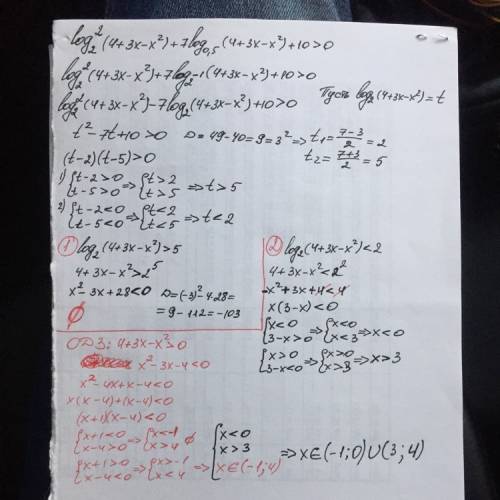 log₂²(4+3x-x²)+7log₀,₅(4+3x-x²)+10>0
log₂²(4+3x-x²)+7log₂-1(4+3x-x²)+10>0
log₂²(4+3x-x²)-7log₂(4+3x-x²)+10>0 Пусть log₂(4+3x-x²)=t
t²-7t+10>0 D=49-40=9=3² => t₁=(7-3)/2=2
t₂=(7+3)/2=5
(t-2)(t-5)>0
1) {t-2>0 t-5>0 => {t>2 t>5 => t>5
2) {t-2<0 t-5<0 => {t<2 t<5 => t<2
① log₂(4+3x-x²)>5
4+3x-x²>2⁵
x²-3x+28<0 D=(-3)²-4·28=
=9-112=-103
∅
② log₂(4+3x-x²)<2
4+3x-x²<2²
-x²+3x+4<4
x(3-x)<0
{x<0 3-x>0 => {x<0 x<3 => x<0
{x>0 3-x<0 => {x>0 x>3 => x>3
ОДЗ: 4+3x-x²>0
x²-3x-4<0
x²-4x+x-4<0
x(x-4)+(x-4)<0
(x+1)(x-4)<0
{x+1<0 x-4>0 => {x<-1 x>4 ∅
{x+1>0 x-4<0 => {x>-1 x<4 => x∈(-1;4)
{x<0 x>3 => x∈(-1;0)∪(3;4)